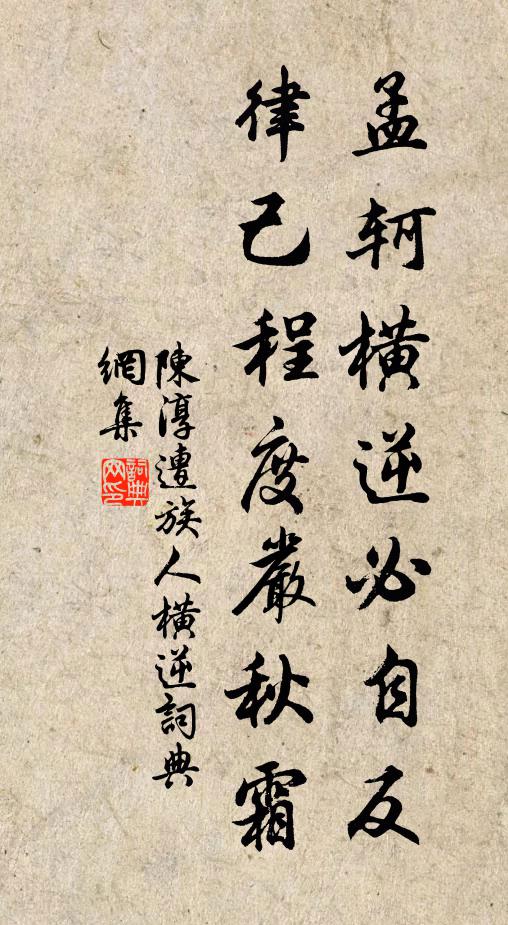 孟軻橫逆必自反
律己程度嚴秋霜
陳淳遭族人橫逆詞典
網集
詞典
网印